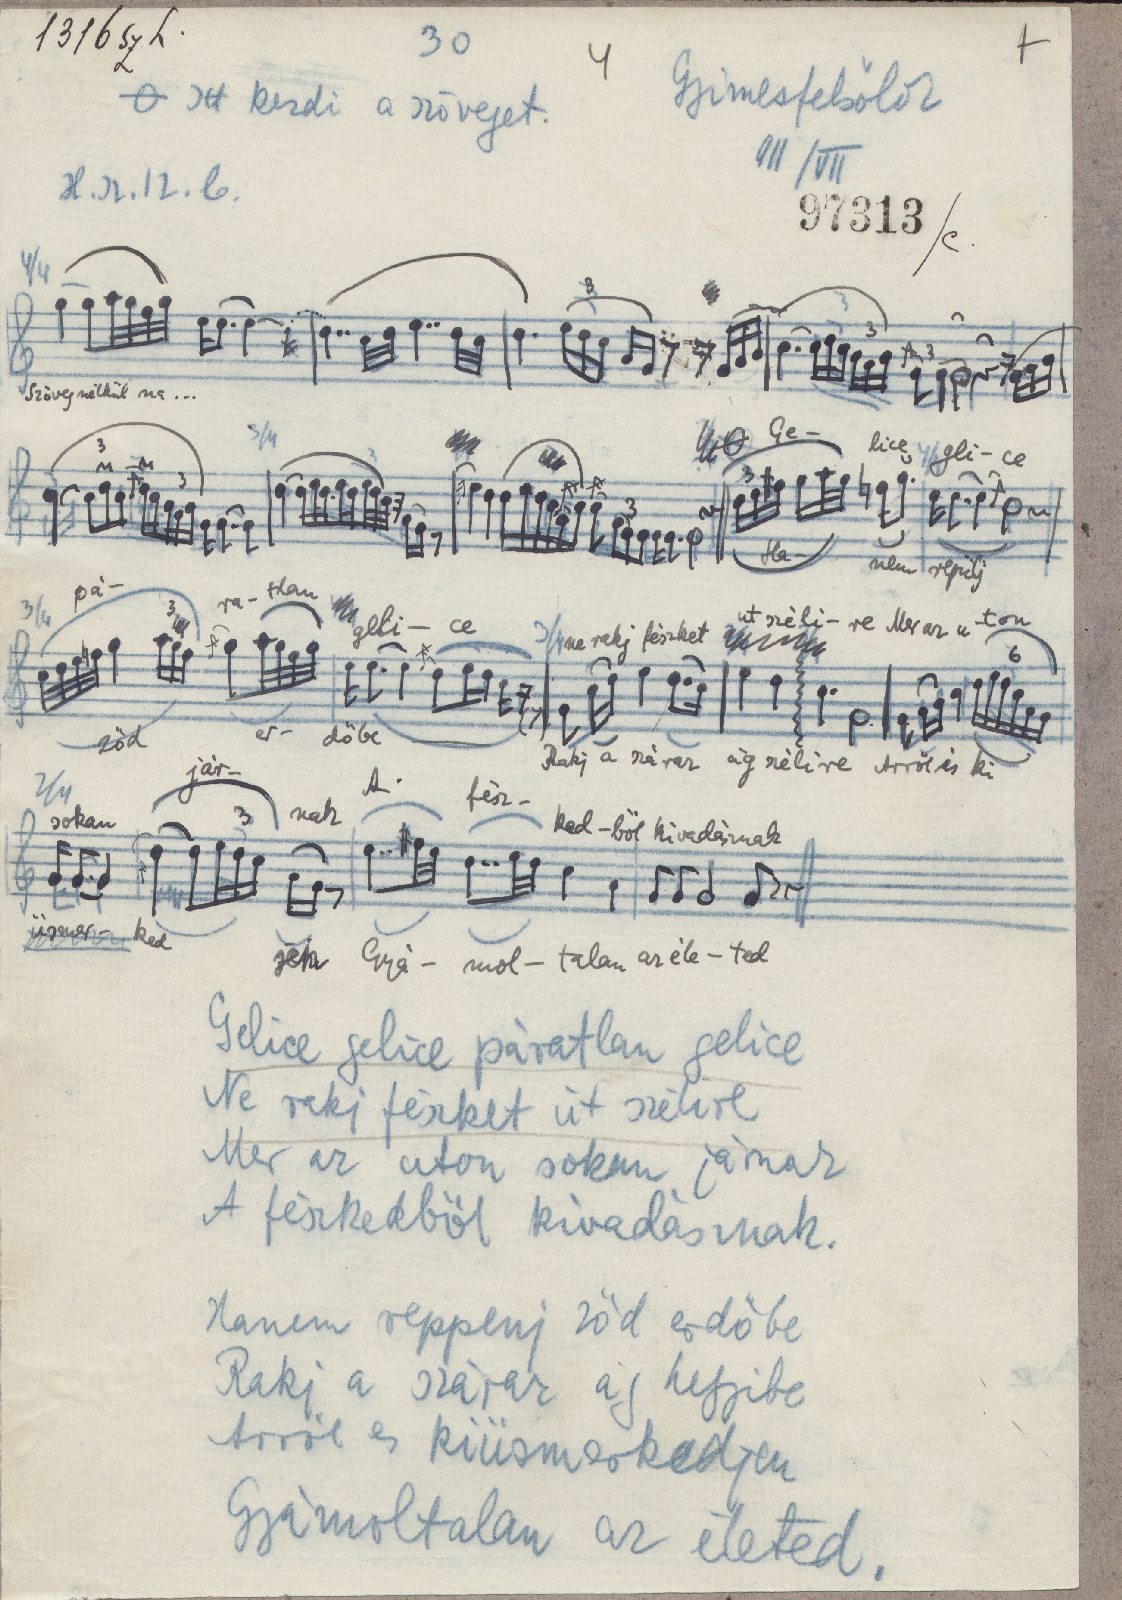 1316 sz h.
30
4
Gyimesfelsőlok
O Itt kezdi a szöveget.
VII /VII
H. sz. 12. b.
97313 /c.
4/4
Szöveg nélkül na ...
3/4
Ge- lice geli- ce
Ha- nem repülj
3/4 pá- ra- tlan geli- ce 3/4 ne rakj fészket út széli- re Mer az u- ton
zöd er- döbe Rakj a szároz ág szélire Arról is ki
2/4 sokan jár- nak A fész- ked-böl kivadásznak
üsmer- ked jék Gyá- mol- talan az éle- ted
Gelice gelice páratlan gelice
Ne rakj fészket út szélire
Mer az uton sokan járnak
A fészkedböl kivadásznak.
Hanem reppenj zöd erdöbe
Rakj a szároz ág heggibe
Arról es kiüsmerkedjen
Gyámoltalan az életed.